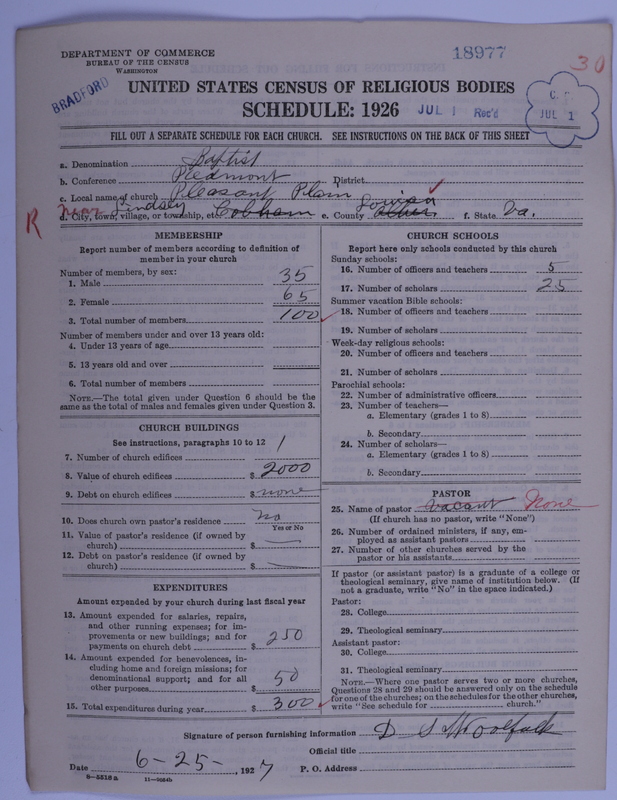 DEPARTMENT OF COMMERCE
BUREAU OF THE CENSUS
WASHINGTON
18977
30
BRADFORD
UNITED STATES CENSUS OF RELIGIOUS BODIES
SCHEDULE: 1926
JUL 1 Rec'd
JUL 1
FILL OUT A SEPARATE SCHEDULE FOR EACH CHURCH. SEE INSTRUCTIONS ON THE BACK OF THIS SHEET
a. Denomination Baptist
b. Conference Piedmont District
c. Local name of church Pleasant Plain
R near Lindsay Louisa
d. City, town, village, or township, etc. Cobham e. County f. State Va.
MEMBERSHIP
Report number of members according to definition of member in your church
Number of members, by sex:
1. Male 35
2. Female 65
3. Total number of members 100
Number of members under and over 13 years old:
4. Under 13 years of age
5. 13 years old and over
6. Total number of members
NOTE.—The total given under Question 6 should be the same as the total of males and females given under Question 3.
CHURCH BUILDINGS
See instructions, paragraphs 10 to 12
7. Number of church edifices 1
8. Value of church edifices $ 2000
9. Debt on church edifices $ none
10. Does church own pastor's residence No
Yes or No
11. Value of pastor's residence (if owned by church) $
12. Debt on pastor's residence (if owned by church) $
EXPENDITURES
Amount expended by your church during last fiscal year
13. Amount expended for salaries, repairs, and other running expenses; for improvements or new buildings; and for payments on church debt $ 250
14. Amount expended for benevolences, including home and foreign missions; for denominational support; and for all other purposes $ 50
15. Total expenditures during year $ 300
CHURCH SCHOOLS
Report here only schools conducted by this church
Sunday schools:
16. Number of officers and teachers 5
17. Number of scholars 25
Summer vacation Bible schools:
18. Number of officers and teachers
19. Number of scholars
Week-day religious schools:
20. Number of officers and teachers
21. Number of scholars
Parochial schools:
22. Number of administrative officers
23. Number of teachers—
a. Elementary (grades 1 to 8)
b. Secondary
24. Number of scholars—
a. Elementary (grades 1 to 8)
b. Secondary
PASTOR
25. Name of pastor vacant None
(If church has no pastor, write "None")
26. Number of ordained ministers, if any, employed as assistant pastors
27. Number of other churches served by the pastor or his assistants
If pastor (or assistant pastor) is a graduate of a college or theological seminary, give name of institution below. (If not a graduate, write "No" in the space indicated.)
Pastor:
28. College
29. Theological seminary
Assistant pastor:
30. College
31. Theological seminary
NOTE.—Where one pastor serves two or more churches, Questions 28 and 29 should be answered only on the schedule for one of the churches; on the schedules for the other churches, write "See schedule for church."
Signature of person furnishing information D S Woolfolk
Official title
Date 6-25-, 1927 P. O. Address
8-5518a 11-9584b